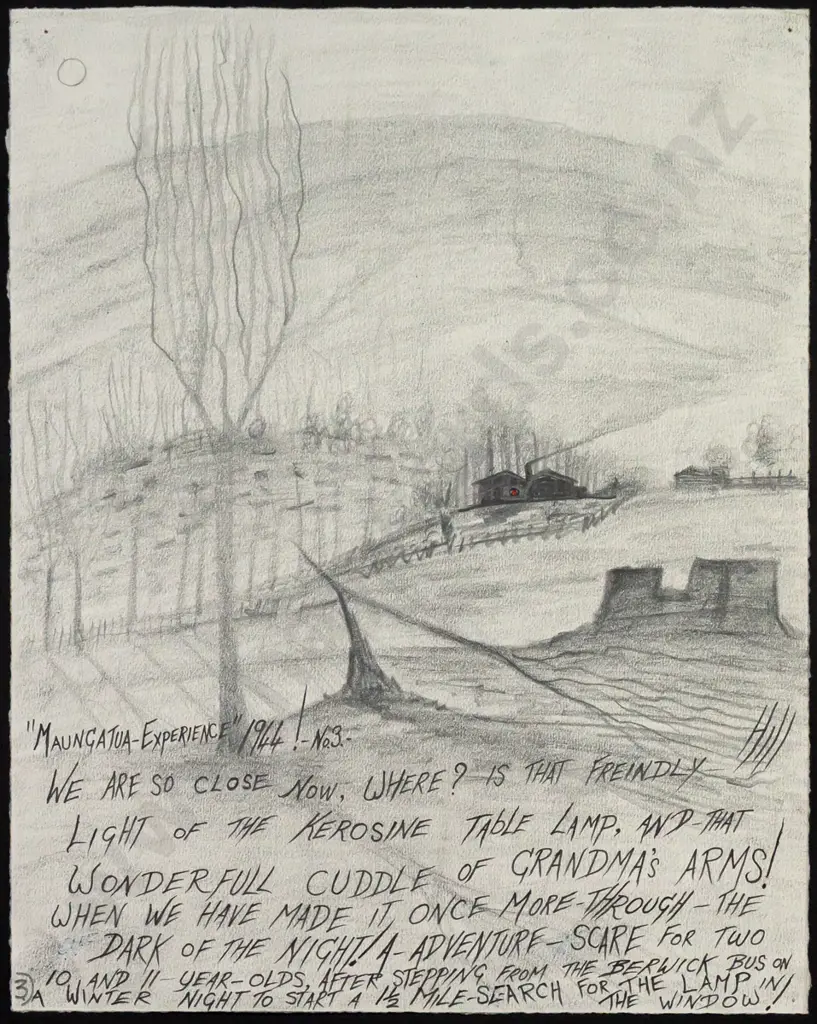 Hill
"MAUNGATUA-EXPERIENCE" 1944!-No3.-
WE ARE SO CLOSE NOW, WHERE? IS THAT FREINDLY
LIGHT OF THE KEROSINE TABLE LAMP, AND-THAT
WONDERFULL CUDDLE OF GRANDMA'S ARMS!
WHEN WE HAVE MADE IT, ONCE MORE-THROUGH-THE
DARK OF THE NIGHT! A-ADVENTURE-SCARE FOR TWO
10 AND 11-YEAR-OLDS, AFTER STEPPING FROM THE BERWICK BUS ON
A WINTER NIGHT TO START A 1½ MILE-SEARCH FOR THE LAMP IN
THE WINDOW!
3